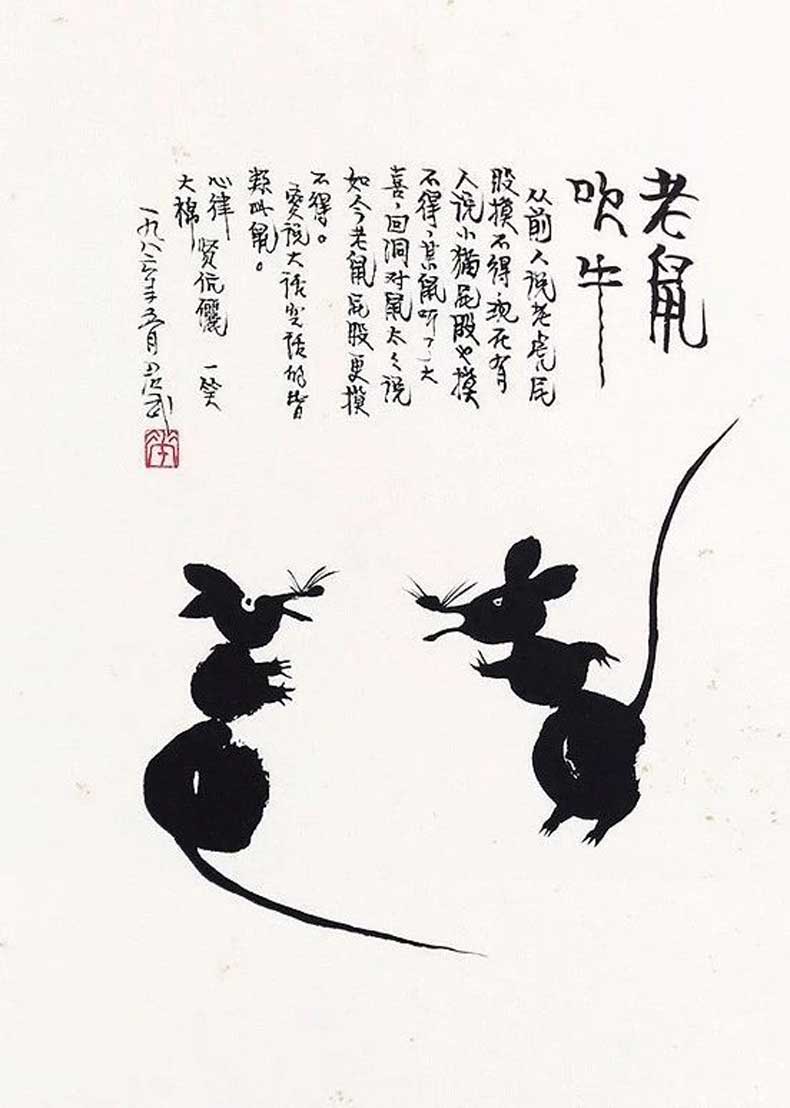 老鼠
吹牛
从前人说老虎屁
股摸不得现在有
人说小猫屁股也摸
不得，某鼠听了大
喜，回洞对鼠太々说
如今老鼠屁股更摸
不得。
爱说大话空话的皆
类此鼠。
心律 贤伉俪 一笑
大棉
一九八六年五月